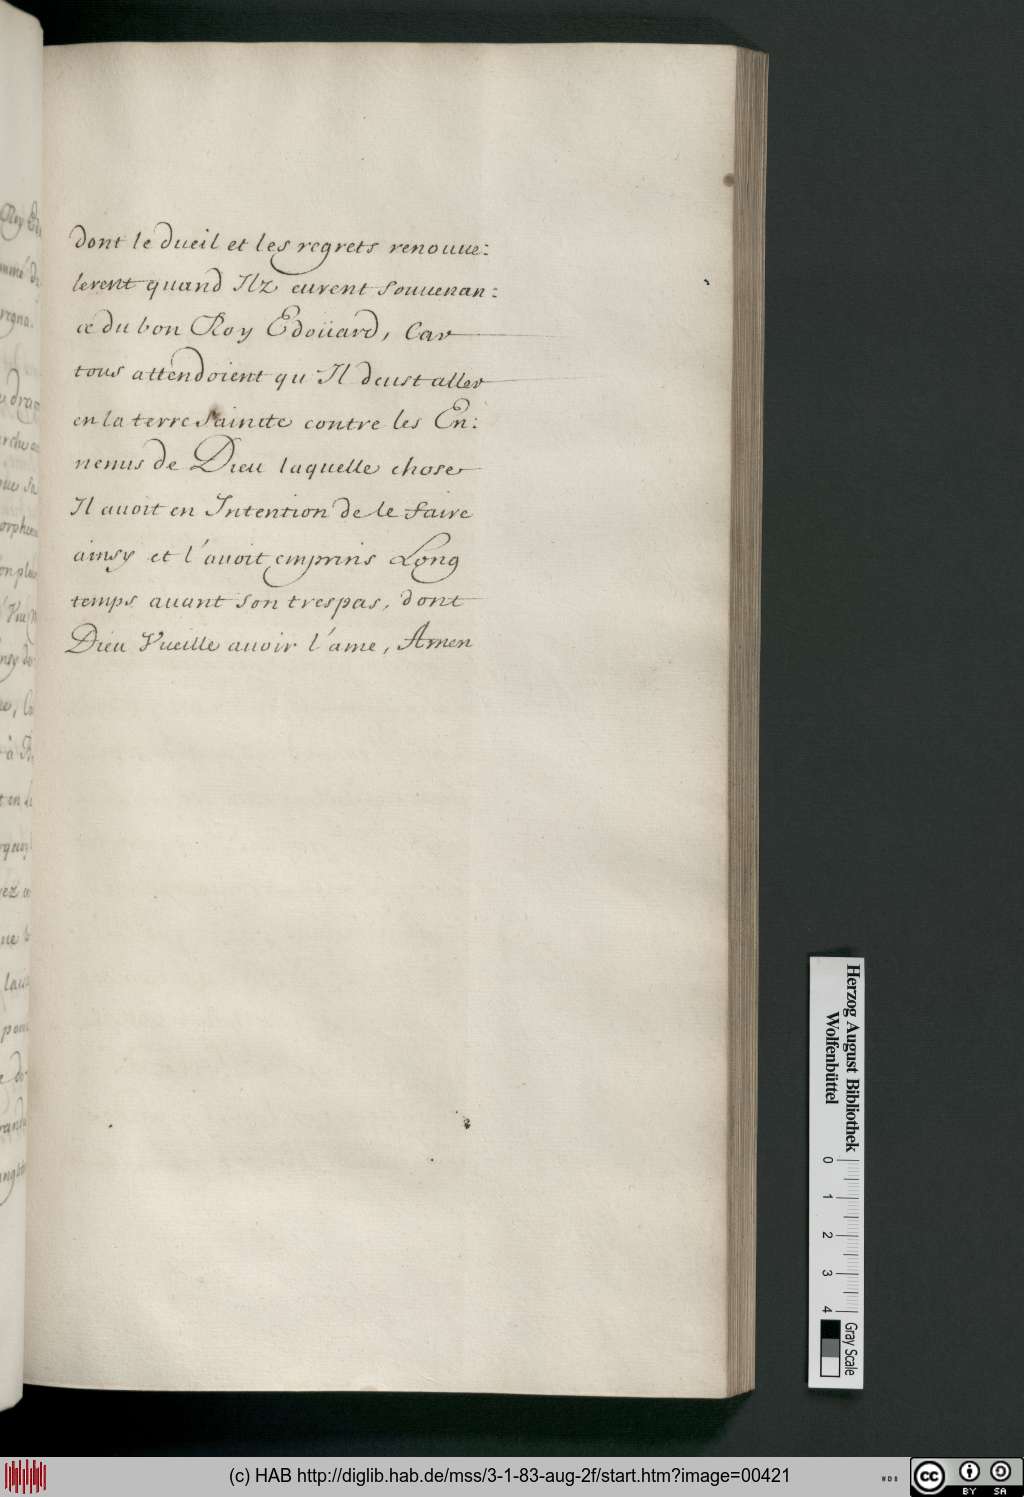 dont le dueil et les regrets renouue:
lerent quand Ilz eurent souuenan:
ce du bon Roy Edoüard, Car
tous attendoient qu Il deust aller
en la terre saincte contre les En:
nemis de Dieu laquelle chose
Il auoit en Intention de le faire
ainsy et l'auoit emprins Long
temps auant son trespas, dont
Dieu Vueille auoir l'ame, Amen
Herzog August Bibliothek
Wolfenbüttel
0 1 2 3 4
Gray Scale
(c) HAB http://diglib.hab.de/mss/3-1-83-aug-2f/start.htm?image=00421
cc BY SA